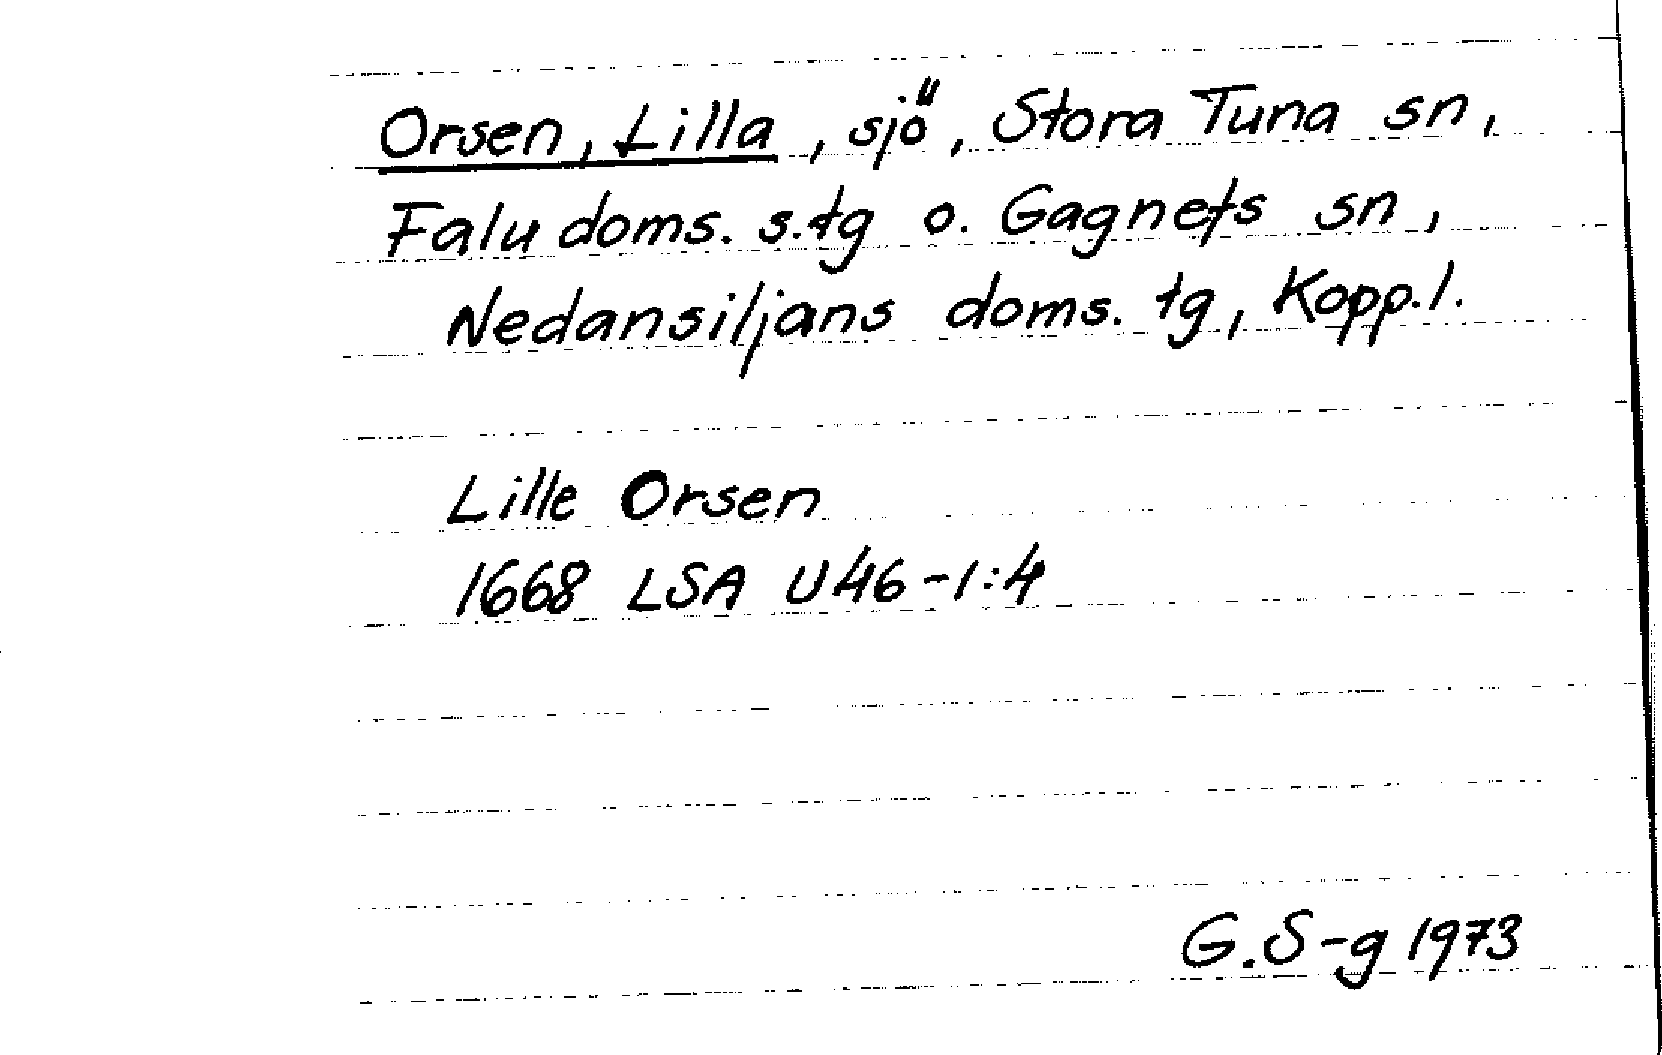 Orsen, Lilla, sjö, Stora Tuna sn,
Falu doms. s. tg o. Gagnefs sn,
Nedansiljans doms. tg, Kopp. l.
Lille Orsen
1668 LSA U46-1:4
G.S-g 1973